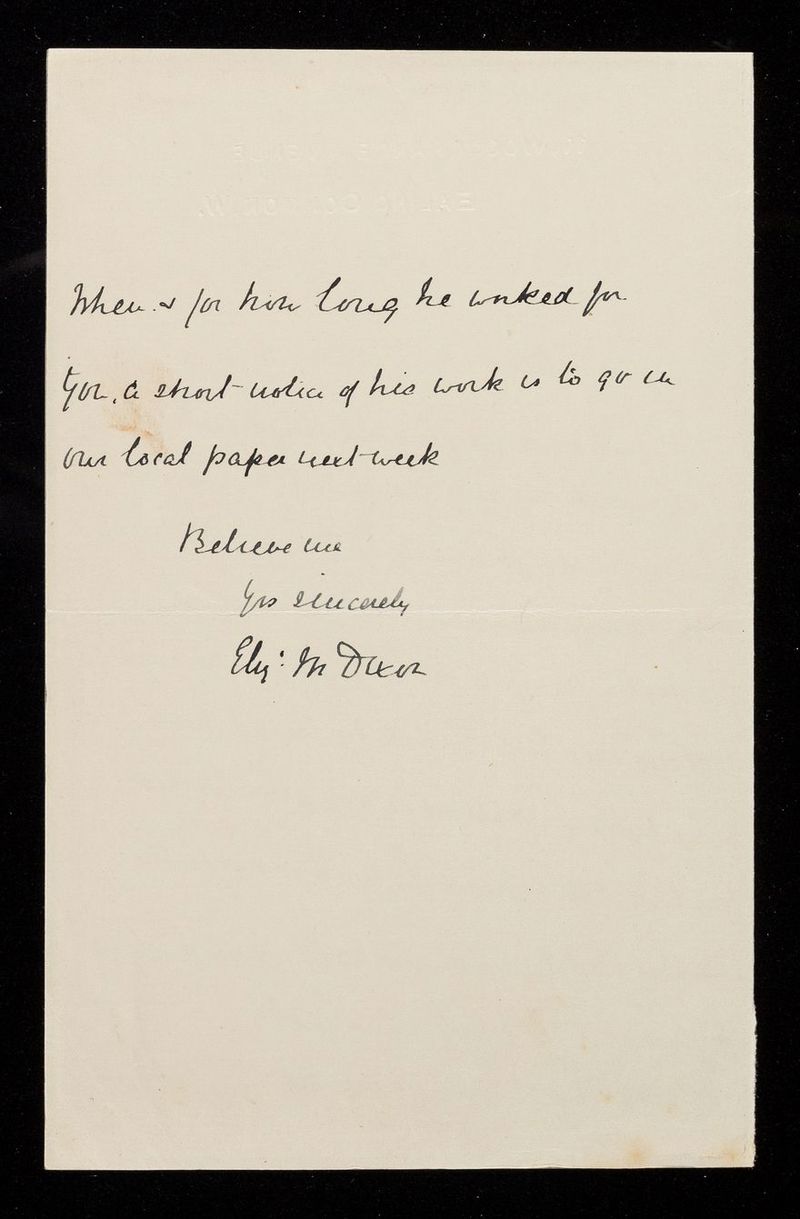 When & for how long he worked for
you, a short notice of his work is to go in
our local paper next week
Believe me
Yrs sincerely
Eliz: M Dixon